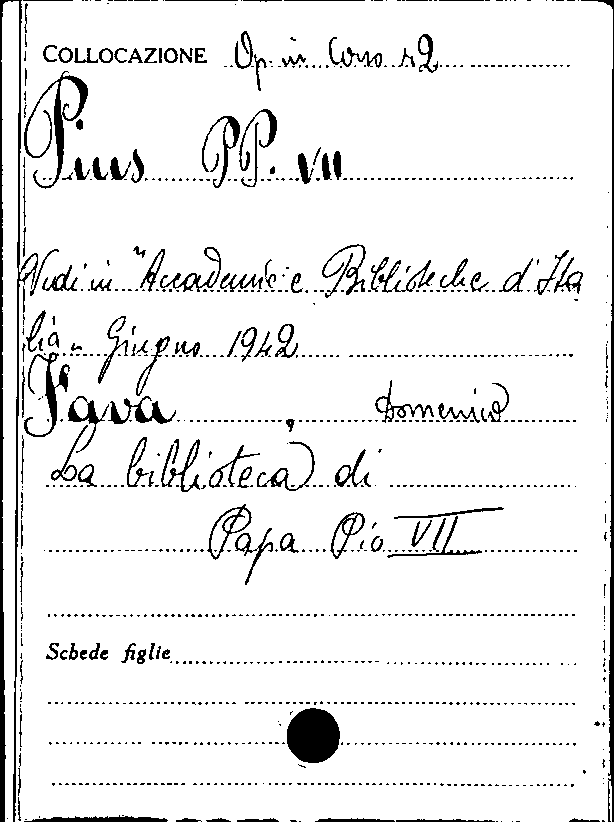 COLLOCAZIONE Op in Corso 42
Pius PP. VII
Vedi in "Accademie e Biblioteche d'Ita
lia" Giugno 1942
Fava, Domenico
La biblioteca di
Papa Pio VII
Schede figlie